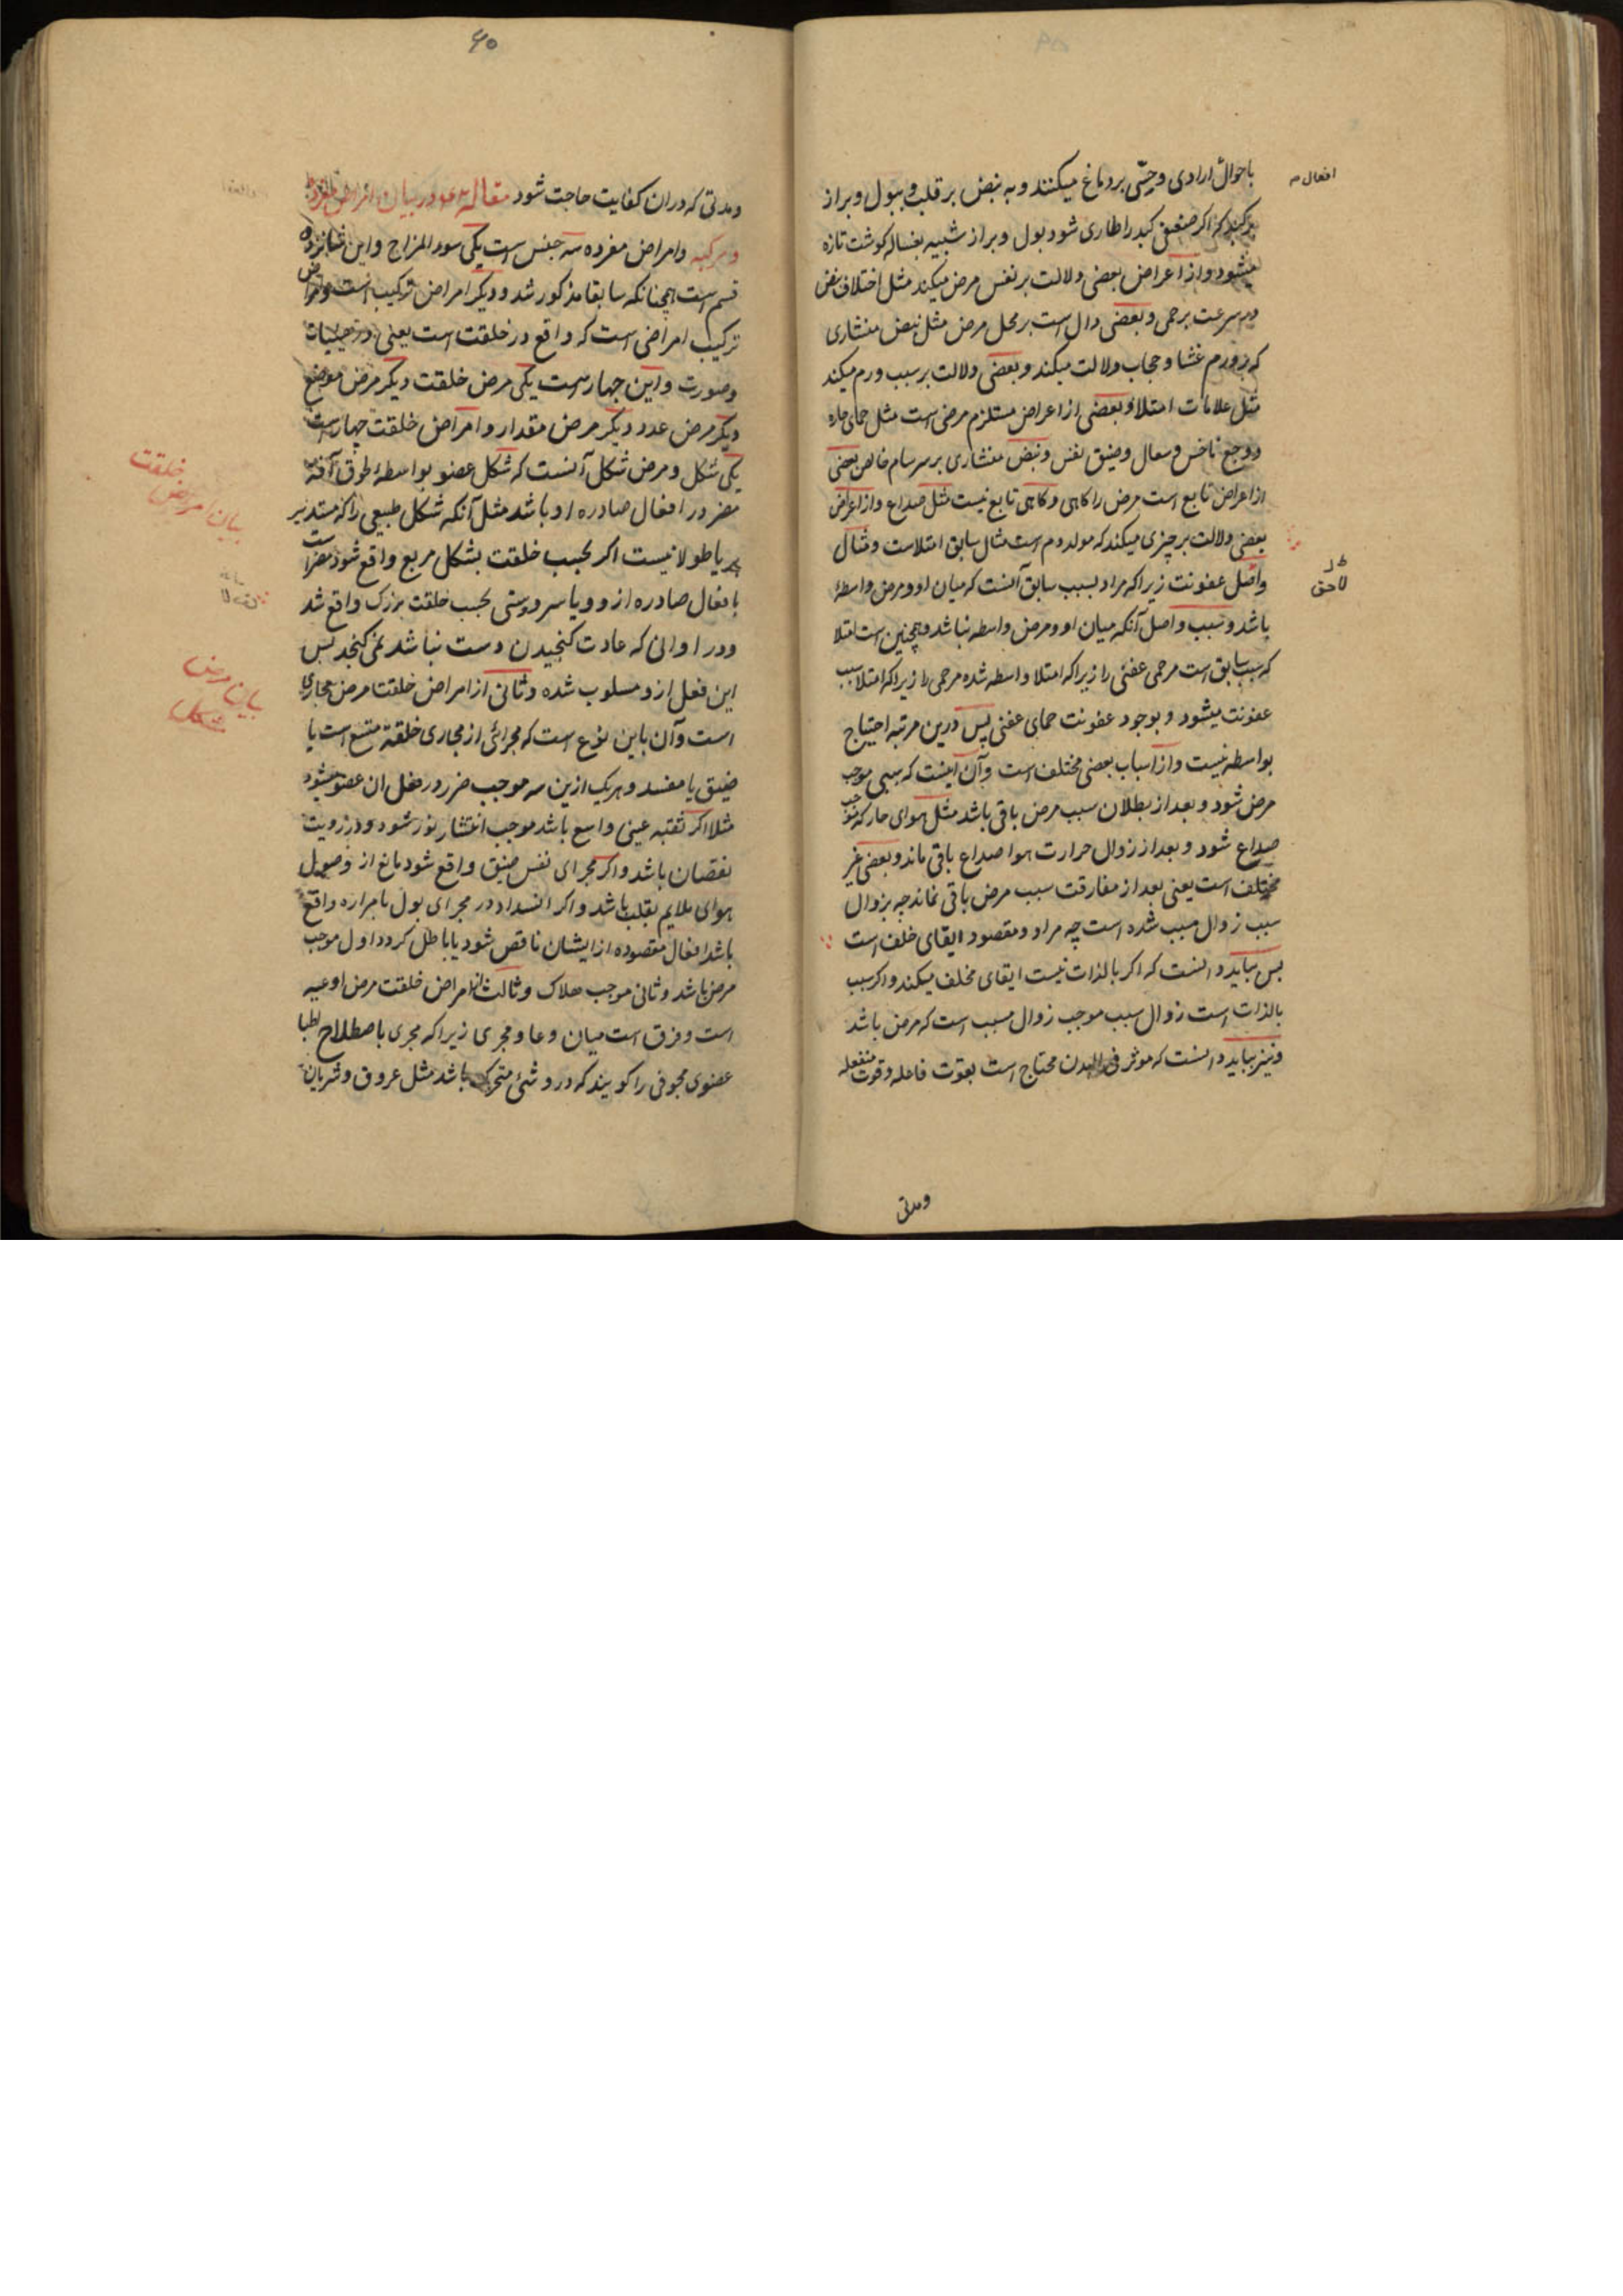 باحوال ارادی و حسّی بر دماغ میکنند و به نبض بر قلب و ببول و براز
افعال م
بر کبد که اکر ضعف کبد را طاری شود بول و براز شبیه بغساله کوشت تازه
میشود و از اعراض بعضی دلالت بر نفس مرض میکند مثل اختلاف نبض
در سرعت بر حمی و بعضی دال است بر محل مرض مثل نبض منشاری
که بر ورم غشا و حجاب دلالت میکند و بعضی دلالت بر سبب ورم میکند
مثل علامات امتلا و بعضی از اعراض مستلزم مرض است مثل حمای حاره
و وجع ناخس و سعال و ضیق نفس و نبض منشاری بر سرسام خالص بعضی
از اعراض تابع است مرض را کاهی و کاهی تابع نیست مثل صداع و از اعراض
بعضی دلالت بر چیزی میکند که مولد دم است مثال سابق امتلاست و مثال
لاحق
واصل عفونت زیراکه مراد بسبب سابق آنست که میان او و مرض واسطهٔ
باشد و سبب واصل آنکه میان او و مرض واسطه نباشد و همچنین است امتلا
که سبب سابق است مر حمی عفنی را زیراکه امتلا واسطه شده مر حمی را زیراکه امتلا سبب
عفونت میشود و بوجود عفونت حمای عفنی پس درین مرتبه احتیاج
بواسطه نیست و از اسباب بعضی مختلف است و آن اینست که سببی موجب
مرض شود و بعد از بطلان سبب مرض باقی باشد مثل هوای حار که موجب
صداع شود و بعد از زوال حرارت هوا صداع باقی ماند و بعضی غیر
مختلف است یعنی بعد از مفارقت سبب مرض باقی نماند چه بزوال
سبب زوال مسبب شده است چه مراد و مقصود ابقای خلف است
بس بباید دانست که اکر بالذات نیست ابقای مخلف میکند و اکر سبب
بالذات است زوال سبب موجب زوال مسبب است که مرض باشد
و نیز بباید دانست که موثر فی البدن محتاج است بقوت فاعله و قوت منفعله
و مدتی
۶۵
و مدتی که دران کفایت حاجت شود مقاله در بیان امراض مفرده
و مرکبه و امراض مفرده سه جنس است یکی سوء المزاج و این شانزده
قسم است همچنانکه سابقا مذکور شد و دیکر امراض ترکیب است و امراض
ترکیب امراضی است که واقع در خلقت است یعنی در هیئات
و صورت و این چهار است یکی مرض خلقت دیکر مرض موضع
دیکر مرض عدد دیکر مرض مقدار و امراض خلقت چهار است
یکی شکل و مرض شکل آنست که شکل عضو بواسطهٔ طوق آفة
بیان امراض خلقت
مضر در افعال صادره او باشد مثل آنکه شکل طبیعی را که مستدیر
یا طولانیست اکر بحسب خلقت بشکل مربع واقع شود مضر است
بافعال صادره ازو و یا سر و دستی بحسب خلقت بزرک واقع شد
و در اوانی که عادت کنجیدن دست نباشد نمی کنجد بس
بیان مرض شکل
این فعل ازو مسلوب شده و ثانی از امراض خلقت مرض مجاری
است و آن باین نوع است که مجرائی از مجاری خلقة متسع است یا
ضیق یا مفسد و هریک ازین سه موجب ضرر در فعل ان عضو میشود
مثلا اکر ثقبه عینی واسع باشد موجب انتشار نور شود و در رویت
نقصان باشد و اکر مجرای نفس ضیق واقع شود مانع از وصول
هوای ملایم بقلب باشد و اکر انسداد در مجرای بول یا مراره واقع
باشد افعال مقصوده از ایشان ناقص شود یا باطل کردد اول موجب
مرض باشد و ثانی موجب هلاک و ثالث از امراض خلقت مرض اوعیه
است و فرق است میان وعا و مجری زیراکه مجری باصطلاح اطبا
عضوی مجوفی را کویند که در و شئ متحرک باشد مثل عروق و شریان